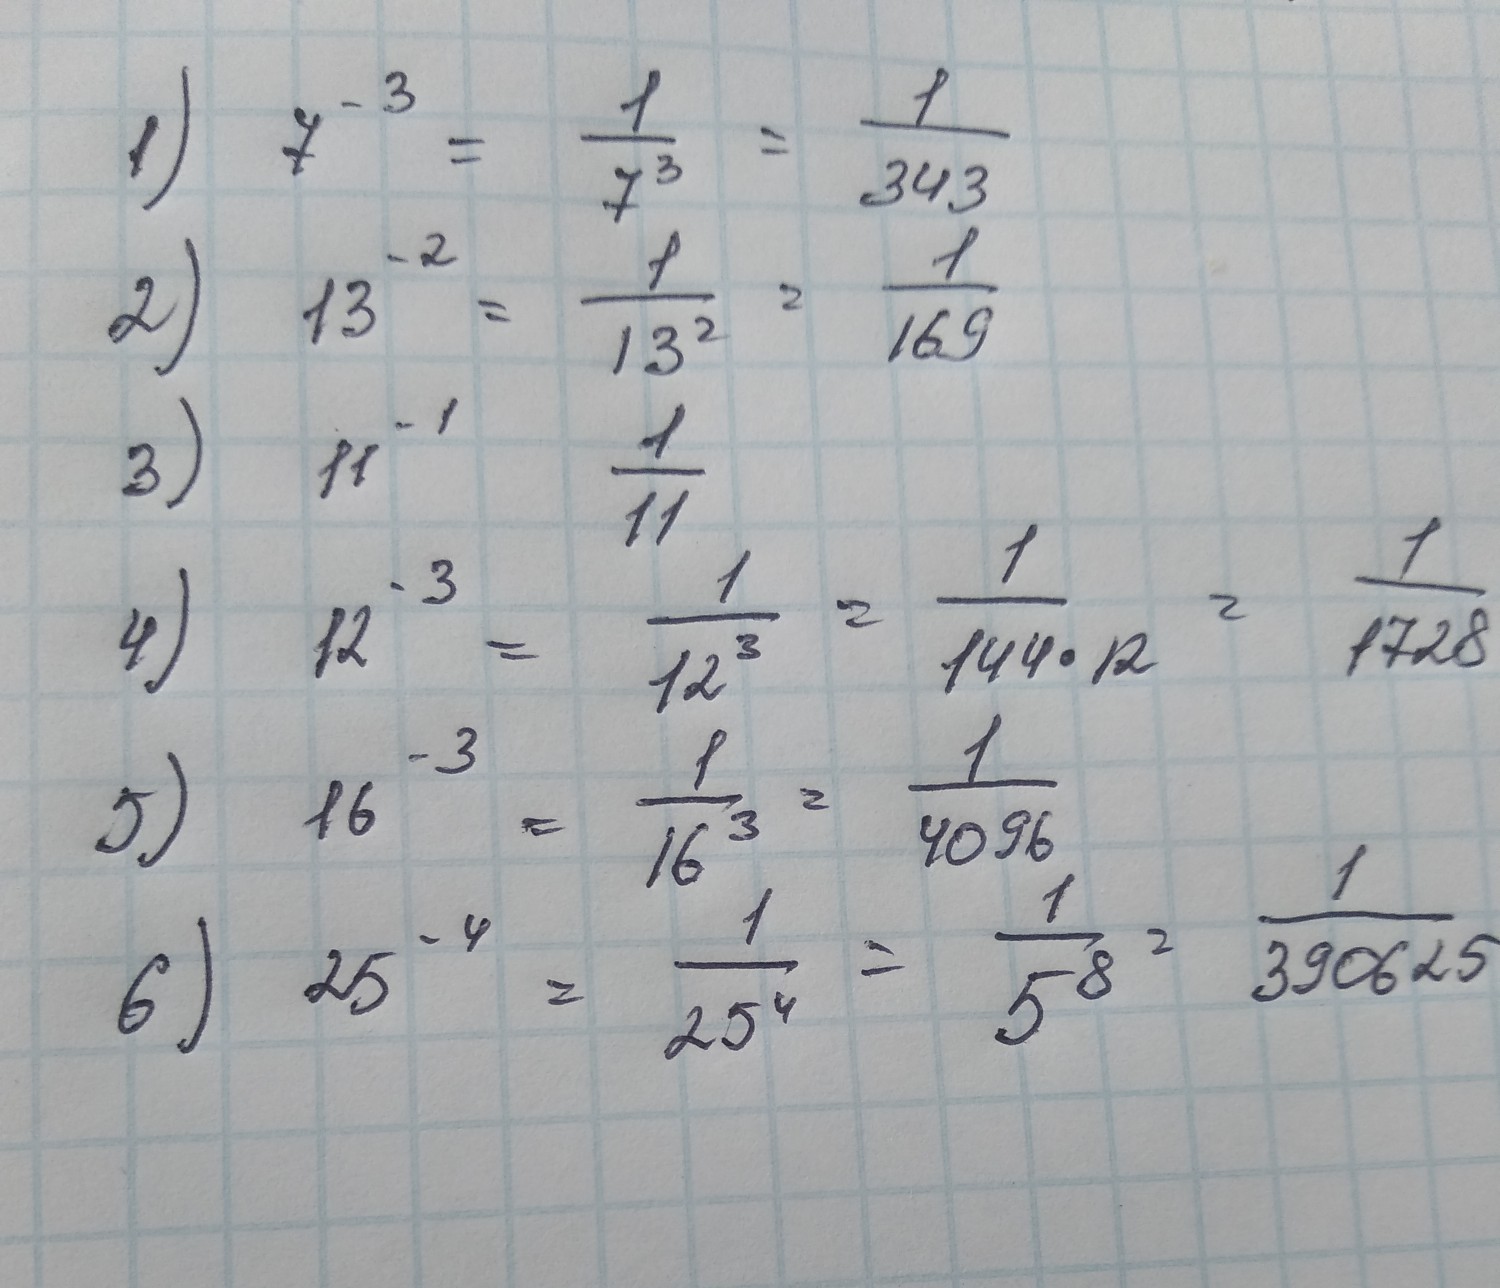 1) 7⁻³ = 1/7³ = 1/343
2) 13⁻² = 1/13² = 1/169
3) 11⁻¹ 1/11
4) 12⁻³ = 1/12³ = 1/144·12 = 1/1728
5) 16⁻³ = 1/16³ = 1/4096
6) 25⁻⁴ = 1/25⁴ = 1/5⁸ = 1/390625